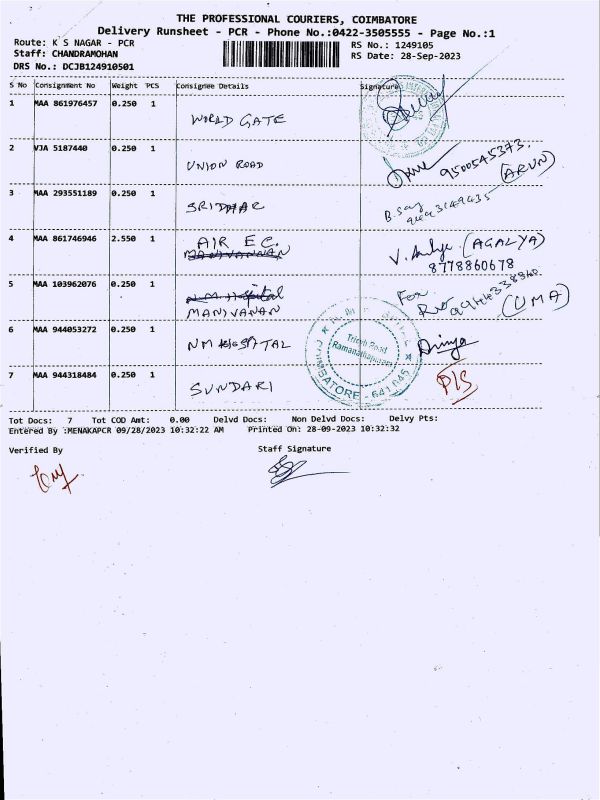 THE PROFESSIONAL COURIERS, COIMBATORE
Delivery Runsheet - PCR - Phone No.:0422-3505555 - Page No.:1
Route: K S NAGAR - PCR
RS No.: 1249105
Staff: CHANDRAMOHAN
RS Date: 28-Sep-2023
DRS No.: DCJB124910501
S No Consignment No Weight PCS Consignee Details Signature
1 MAA 861976457 0.250 1 WORLD GATE
2 VJA 5187440 0.250 1 UNION ROAD 9500545373. (ARUN)
3 MAA 293551189 0.250 1 SRIDHAR
4 MAA 861746946 2.550 1 AIR E C. (AGALYA)
MANIVANNAN 8778860678
5 MAA 103962076 0.250 1 N.M. Hospital For
MANIVANAN (UMA)
6 MAA 944053272 0.250 1 NM HOSPITAL
Trichy Road
Ramanathapuram
COIMBATORE - 641 045
7 MAA 944318484 0.250 1 SUNDARI P/S
Tot Docs: 7 Tot COD Amt: 0.00 Delvd Docs: Non Delvd Docs: Delvy Pts:
Entered By :MENAKAPCR 09/28/2023 10:32:22 AM Printed On: 28-09-2023 10:32:32
Verified By Staff Signature